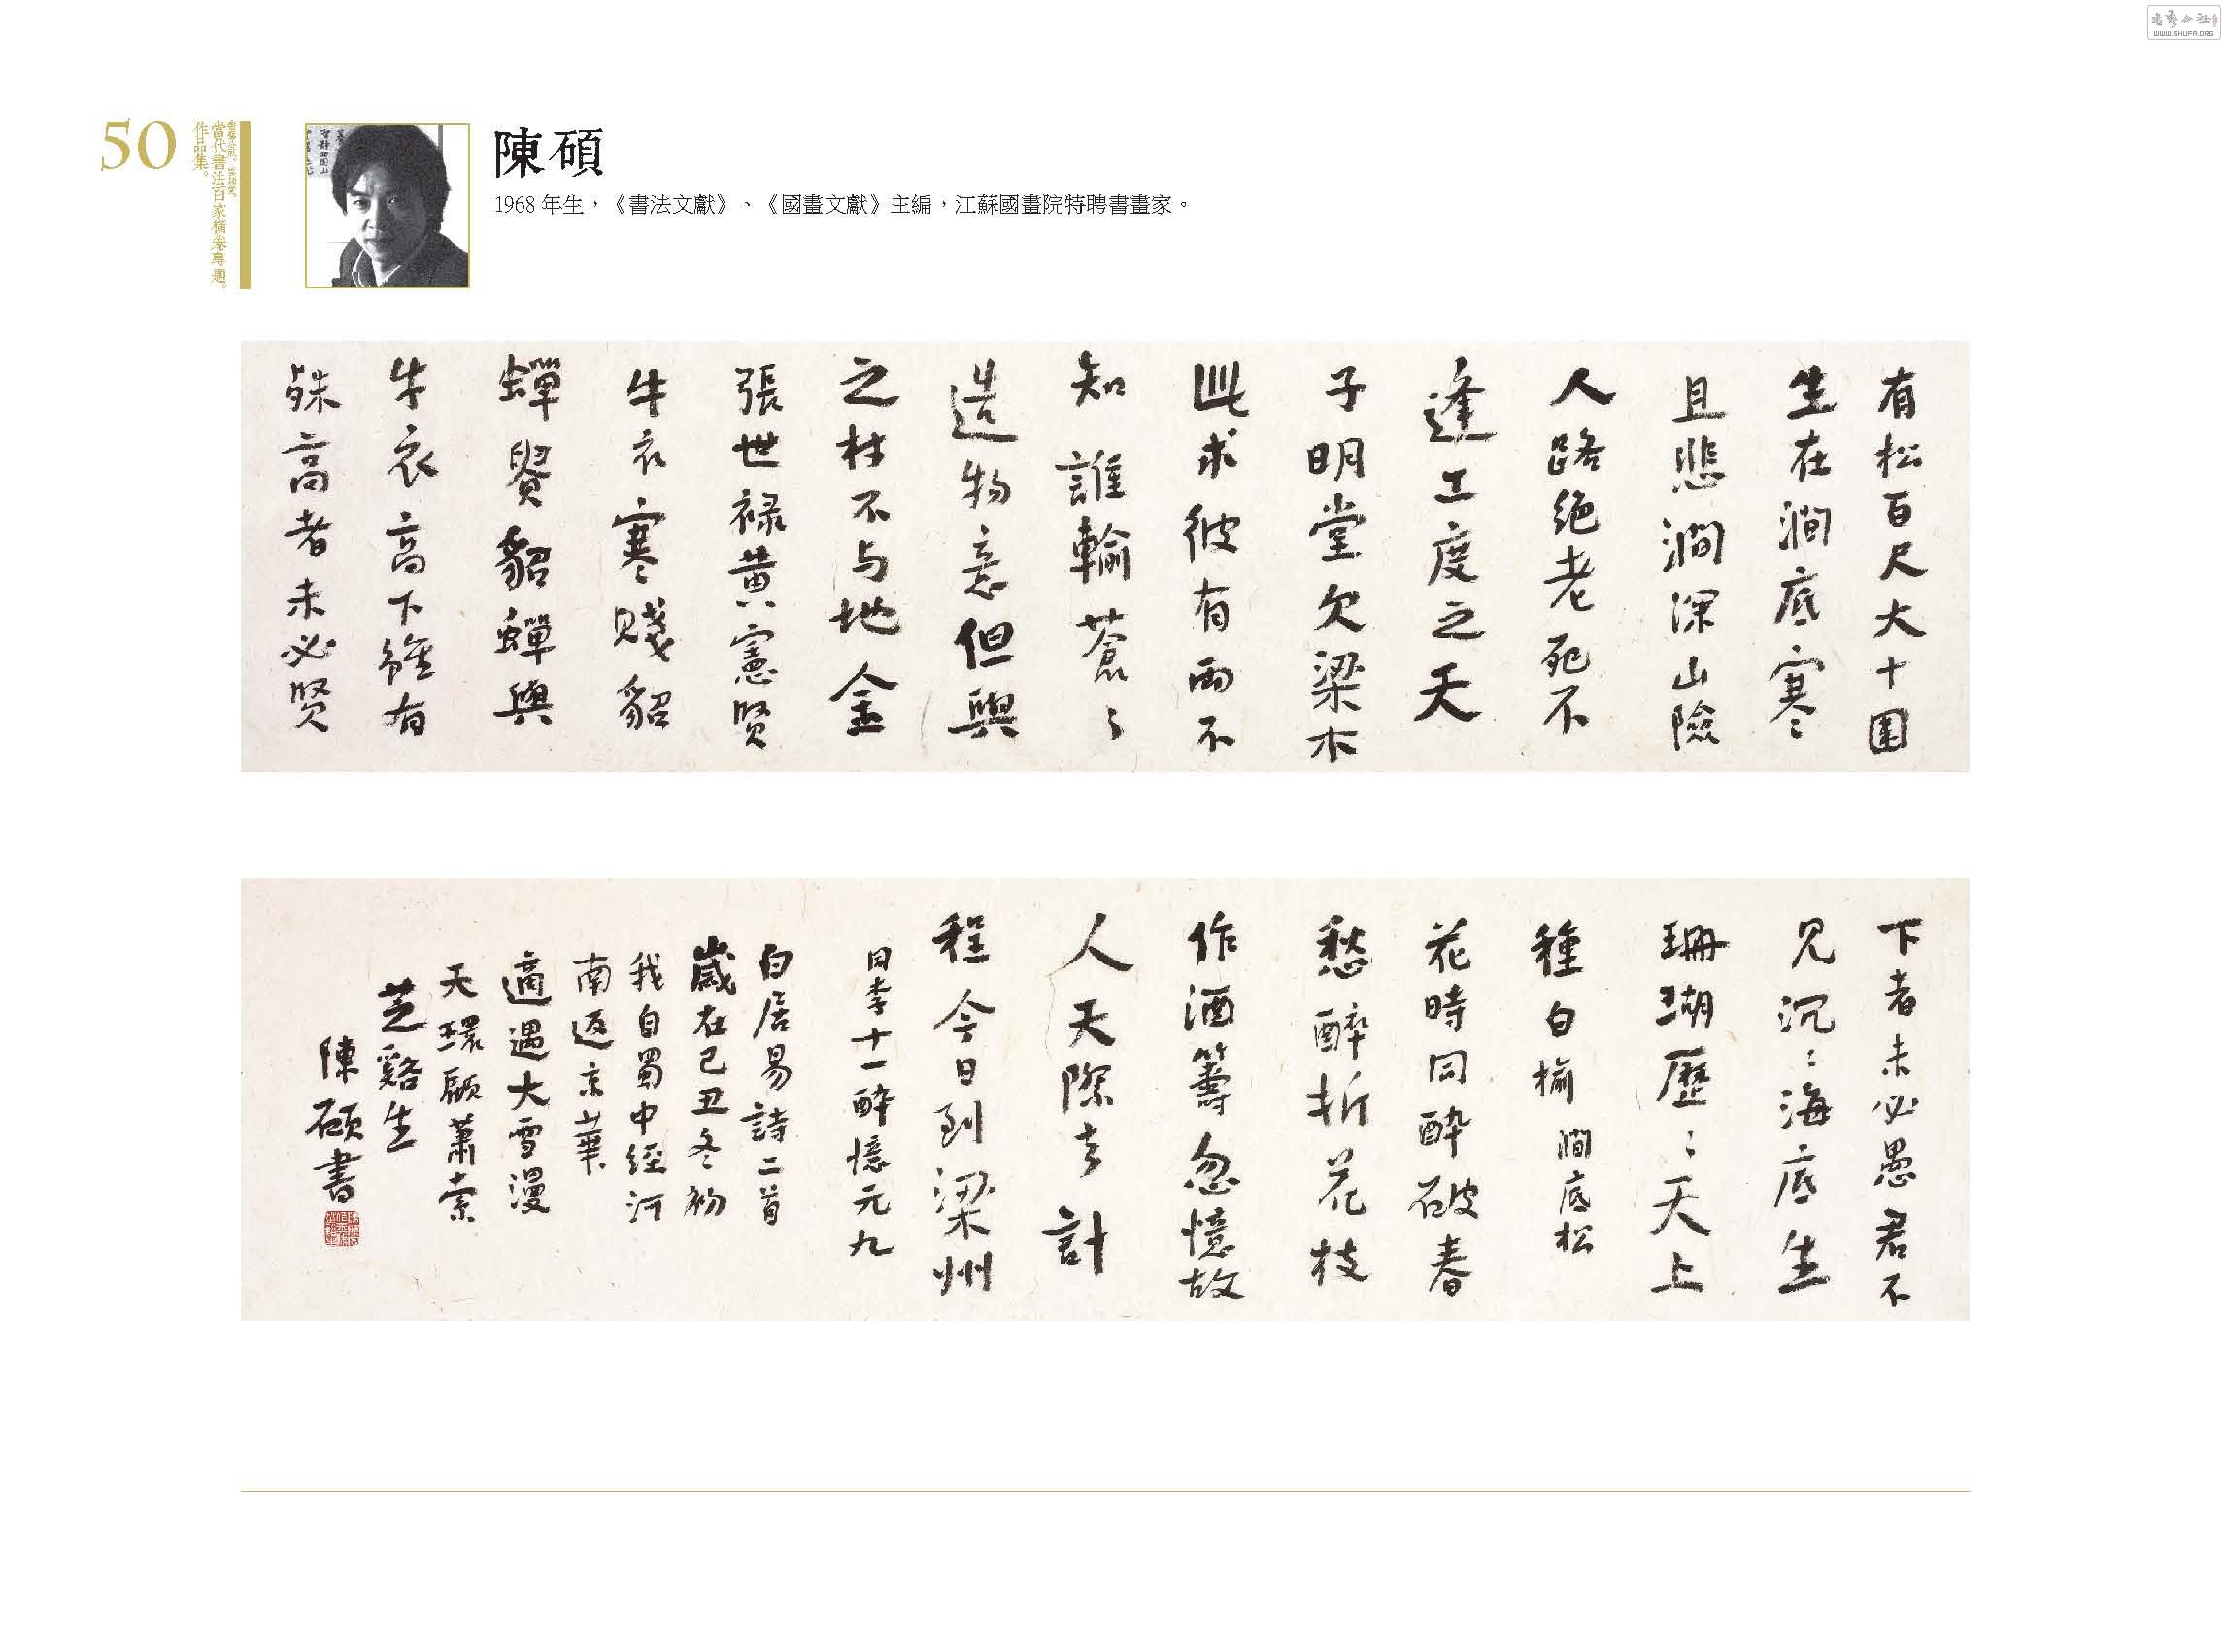 WWW.SHUFA.ORG
50
當代書法百家橫卷專題。
作品集。
陳碩
1968 年生，《書法文獻》、《國畫文獻》主編，江蘇國畫院特聘書畫家。
有松百尺大十圍
生在澗底寒
且悲澗深山險
人路絕老死不
逢工度之天
子明堂欠梁木
此求彼有兩不
知誰輸蒼〻
造物意但與
之材不与地金
張世禄黄憲賢
牛衣寒賤貂
蟬貴貂蟬與
牛衣高下雖有
殊高者未必賢
下者未必愚君不
见沉〻海底生
珊瑚歷〻天上
種白榆 澗底松
花時同醉破春
愁醉折花枝
作酒籌忽憶故
人天際去計
程今日到梁州
同李十一醉憶元九
白居易詩二首
歲在己丑冬初
我自蜀中經河
南返京華
適遇大雪漫
天環顧蕭索
芝谿生
陳碩書